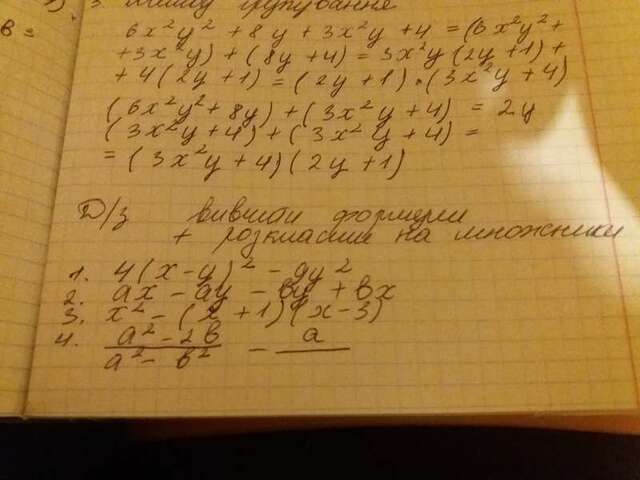 групування
в =
6x²y² + 8y + 3x²y + 4 = (6x²y² +
+ 3x²y) + (8y + 4) = 3x²y (2y + 1) +
+ 4 (2y + 1) = (2y + 1) · (3x²y + 4)
(6x²y² + 8y) + (3x²y + 4) = 2y
(3x²y + 4) + (3x²y + 4) =
= (3x²y + 4) (2y + 1)
Д/з вивчити формули
+ розкласти на множники
1. 4(x - y)² - 9y²
2. ax - ay - by + bx
3. x² - (x + 1)(x - 3)
4. a² - 2b / a² - b² - a /